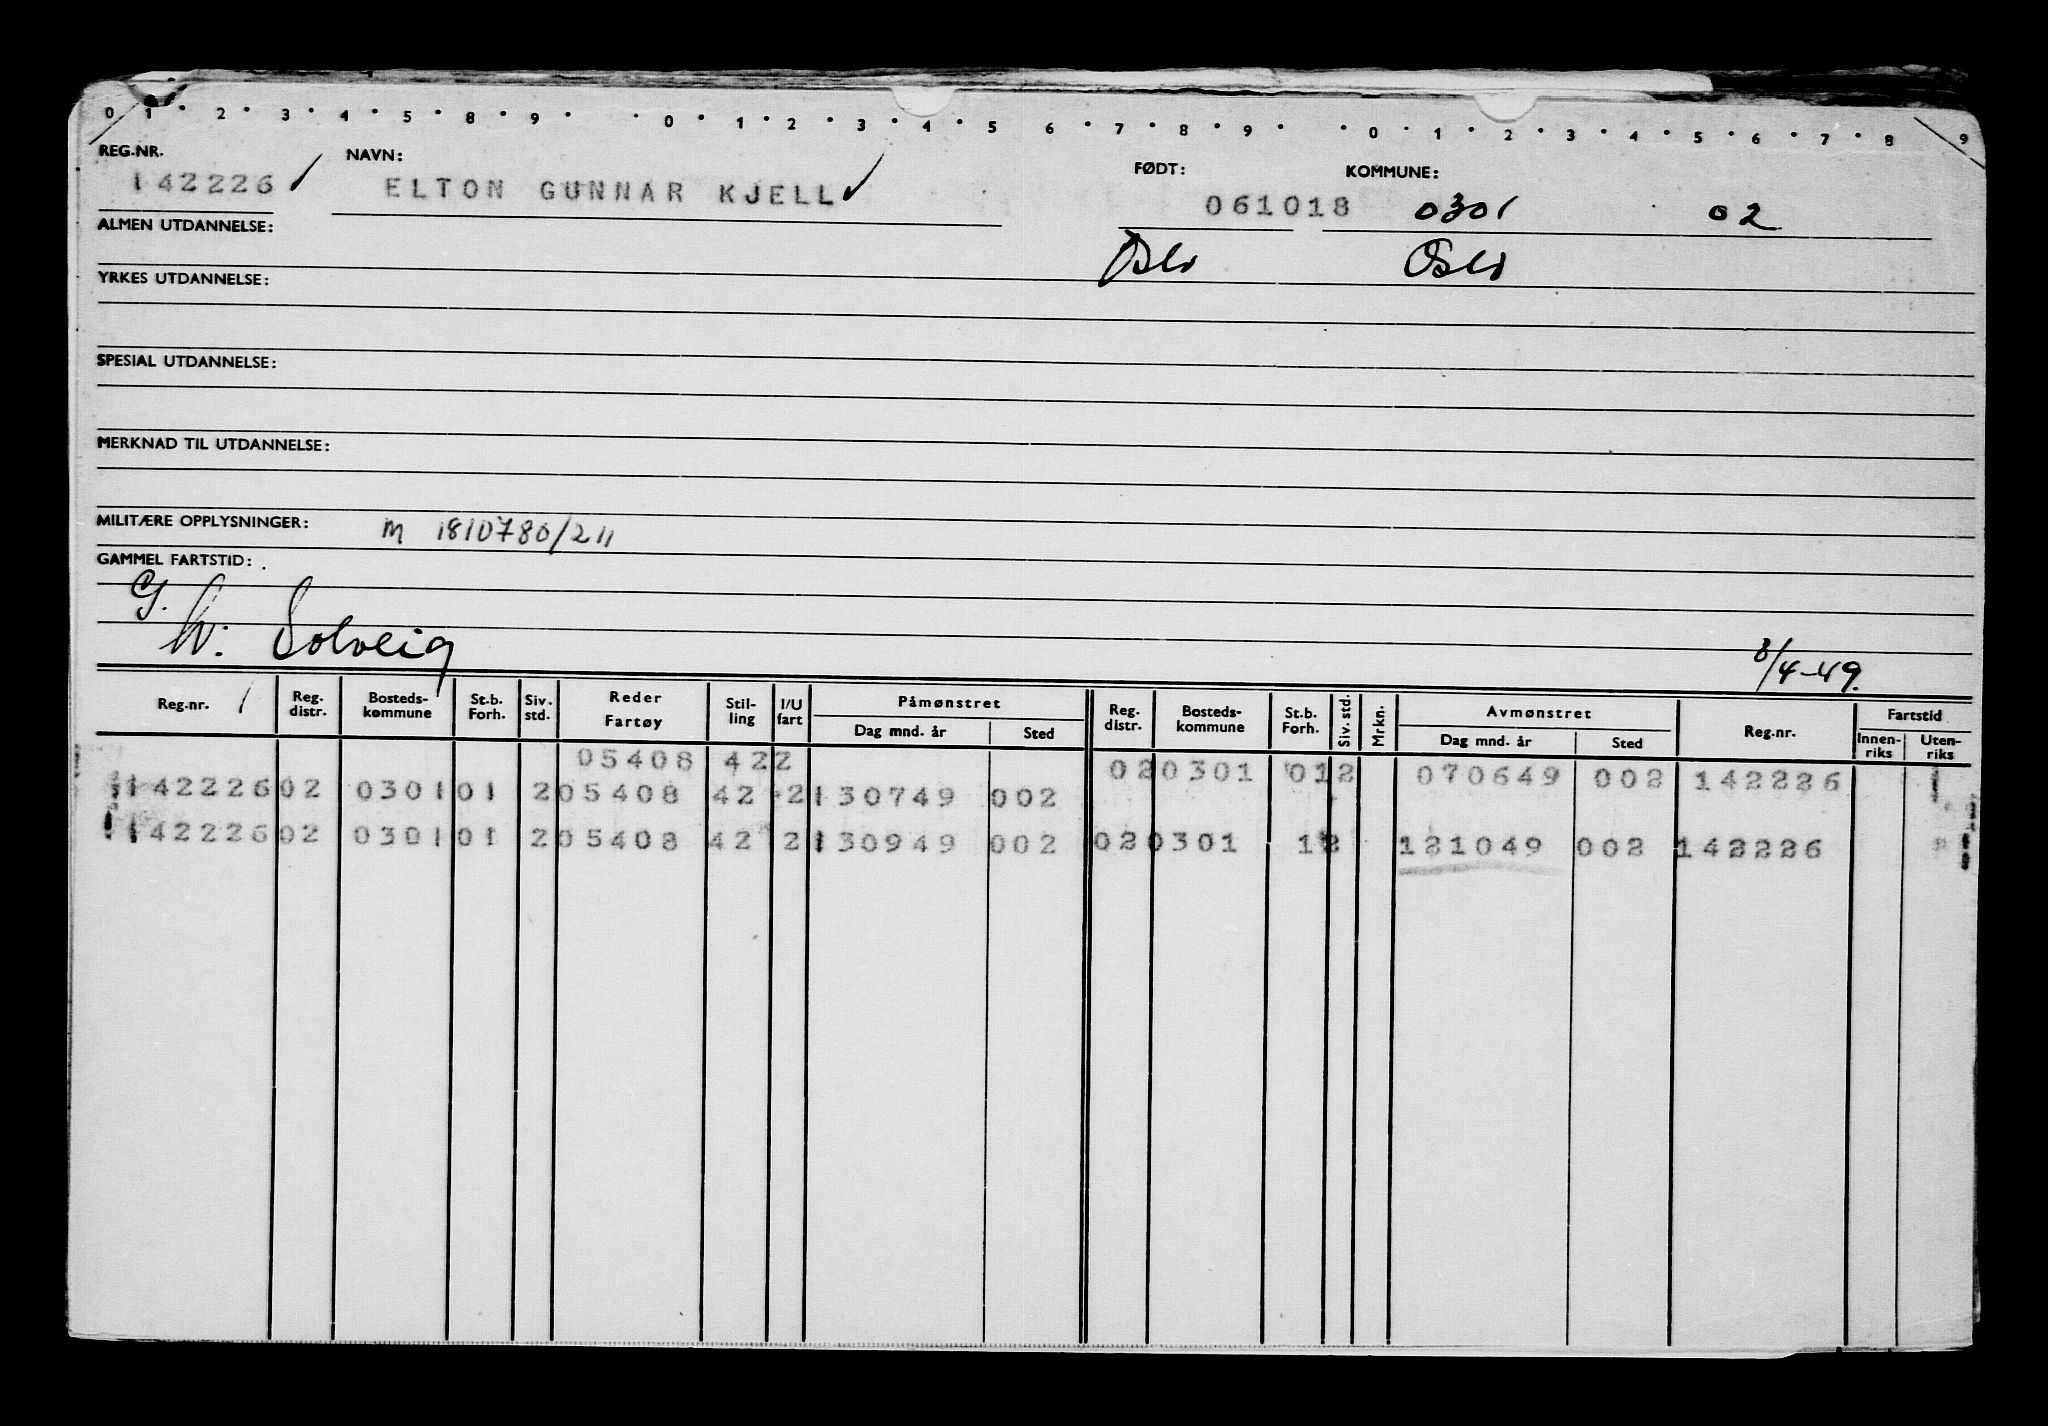 0 1 2 3 4 5 8 9 0 1 2 3 4 5 6 7 8 9 0 1 2 3 4 5 6 7 8 9
REG.NR. NAVN: FØDT: KOMMUNE:
142226 ELTON GUNNAR KJELL 061018 0301 02
ALMEN UTDANNELSE: Oslo Oslo
YRKES UTDANNELSE:
SPESIAL UTDANNELSE:
MERKNAD TIL UTDANNELSE:
MILITÆRE OPPLYSNINGER: M 1810780/211
GAMMEL FARTSTID:
G.
Solveig 8/4-49.
Reg.nr. Reg. distr. Bosteds-kommune St.b. Forh. Siv. std. Reder Fartøy Stil-ling I/U fart Påmønstret Dag mnd. år Sted Reg. distr. Bosteds-kommune St.b. Forh. Siv. std. Mrkn. Avmønstret Dag mnd. år Sted Reg.nr. Fartstid Innen-riks Uten-riks
05408 422 02 0301 012 070649 002 142226 1
142226 02 0301 01 2 05408 42 2 130749 002
142226 02 0301 01 2 05408 42 2 130949 002 02 0301 12 121049 002 142226